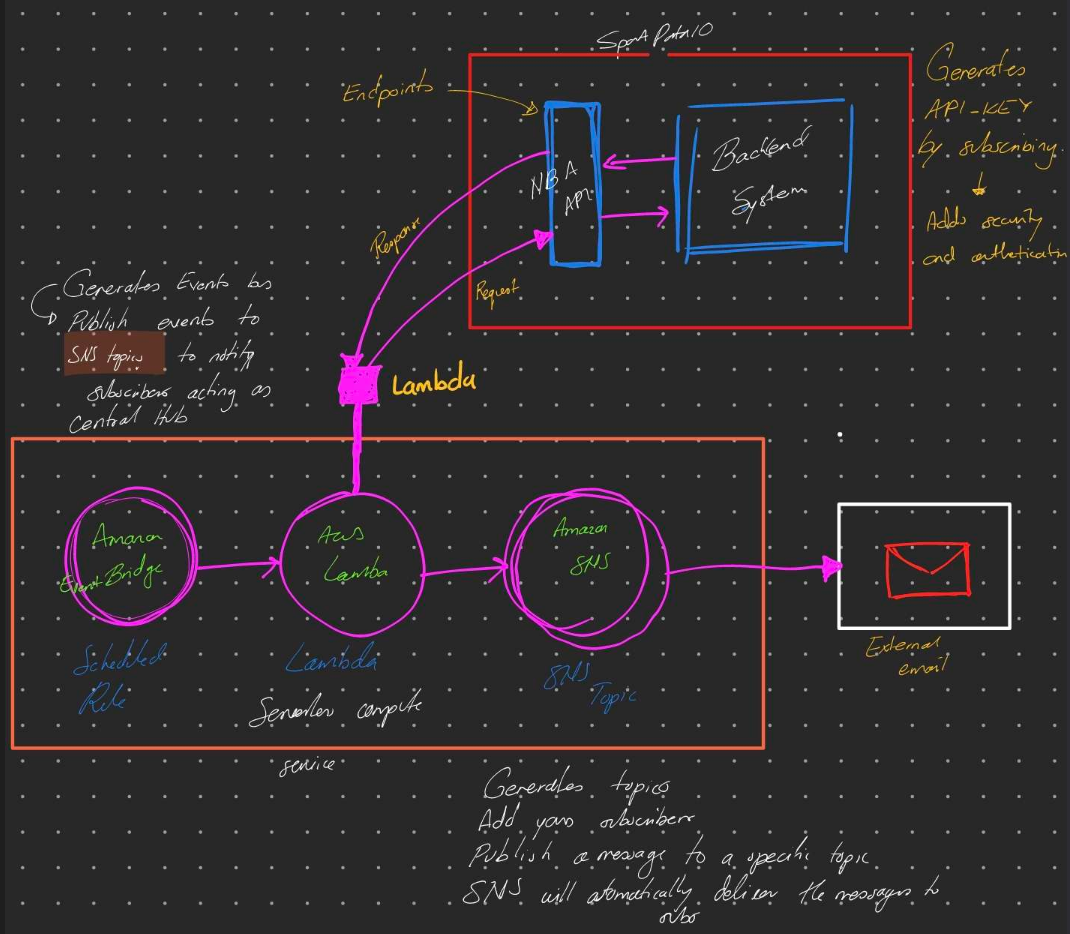 Sport Data IO
Endpoints
NBA
API
Backend
System
Generates
API-KEY
by subscribing.
Adds security
and authetication
Response
Request
Generates Events bus
Publish events to
SNS topics to notify
subscribers acting as
Central Hub
Lambda
Amazon
EventBridge
Scheduled
Rule
Aws
Lamba
Lambda
Serverless compute
service
Amazon
SNS
SNS
Topic
External
email
Generates topics
Add your subscribers
Publish a message to a specific topic
SNS will automatically deliver the messages to
subs